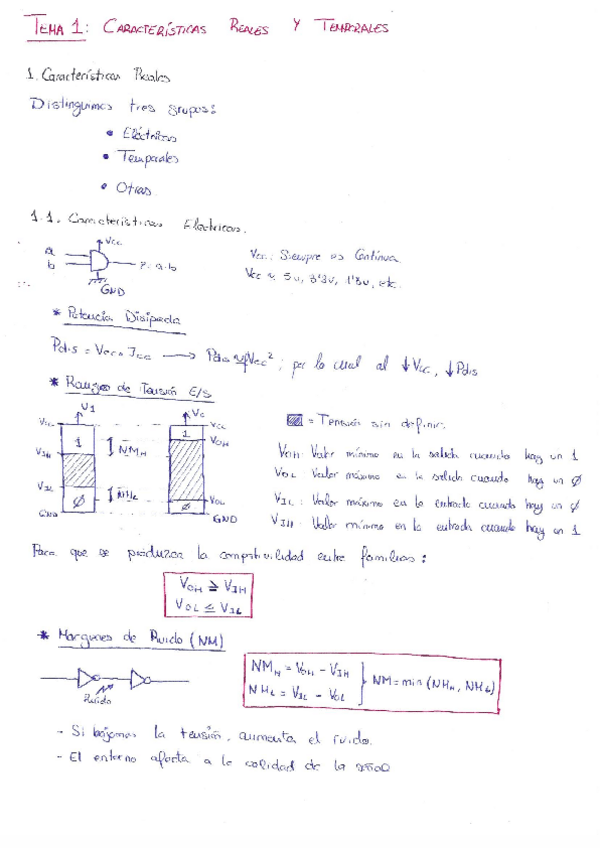 TEMA 1: CARACTERÍSTICAS REALES Y TEMPORALES
1. Características Reales
Distinguimos tres grupos:
• Eléctricas
• Temporales
• Otras
1.1. Características Electricas.
a
b
Vcc
F = a·b
GND
Vcc: Siempre es Continua
Vcc ≈ 5v, 3'3v, 1'8v, etc.
* Potencia Disipada
Pdis = Vcc · Icc → Pdis Vcc²; por lo cual al ↓Vcc, ↓Pdis
* Rangos de Tensión E/S
VI
Vcc
1
VIH
NMH
VIL
NML
Ø
GND
Vc
Vcc
1
VOH
VOL
Ø
GND
= Tensión sin definir.
VOH: Valor mínimo en la salida cuando hay un 1
VOL: Valor máximo en la salida cuando hay un Ø
VIL: Valor máximo en la entrada cuando hay un Ø
VIH: Valor mínimo en la entrada cuando hay un 1
Para que se produzca la compativilidad entre familias:
VOH ≥ VIH
VOL ≤ VIL
* Margenes de Ruido (NM)
Ruido
NMH = VOH - VIH
NML = VIL - VOL
NM = min (NMH, NML)
- Si bajamos la tensión, aumenta el ruido.
- El entorno afecta a la calidad de la señal